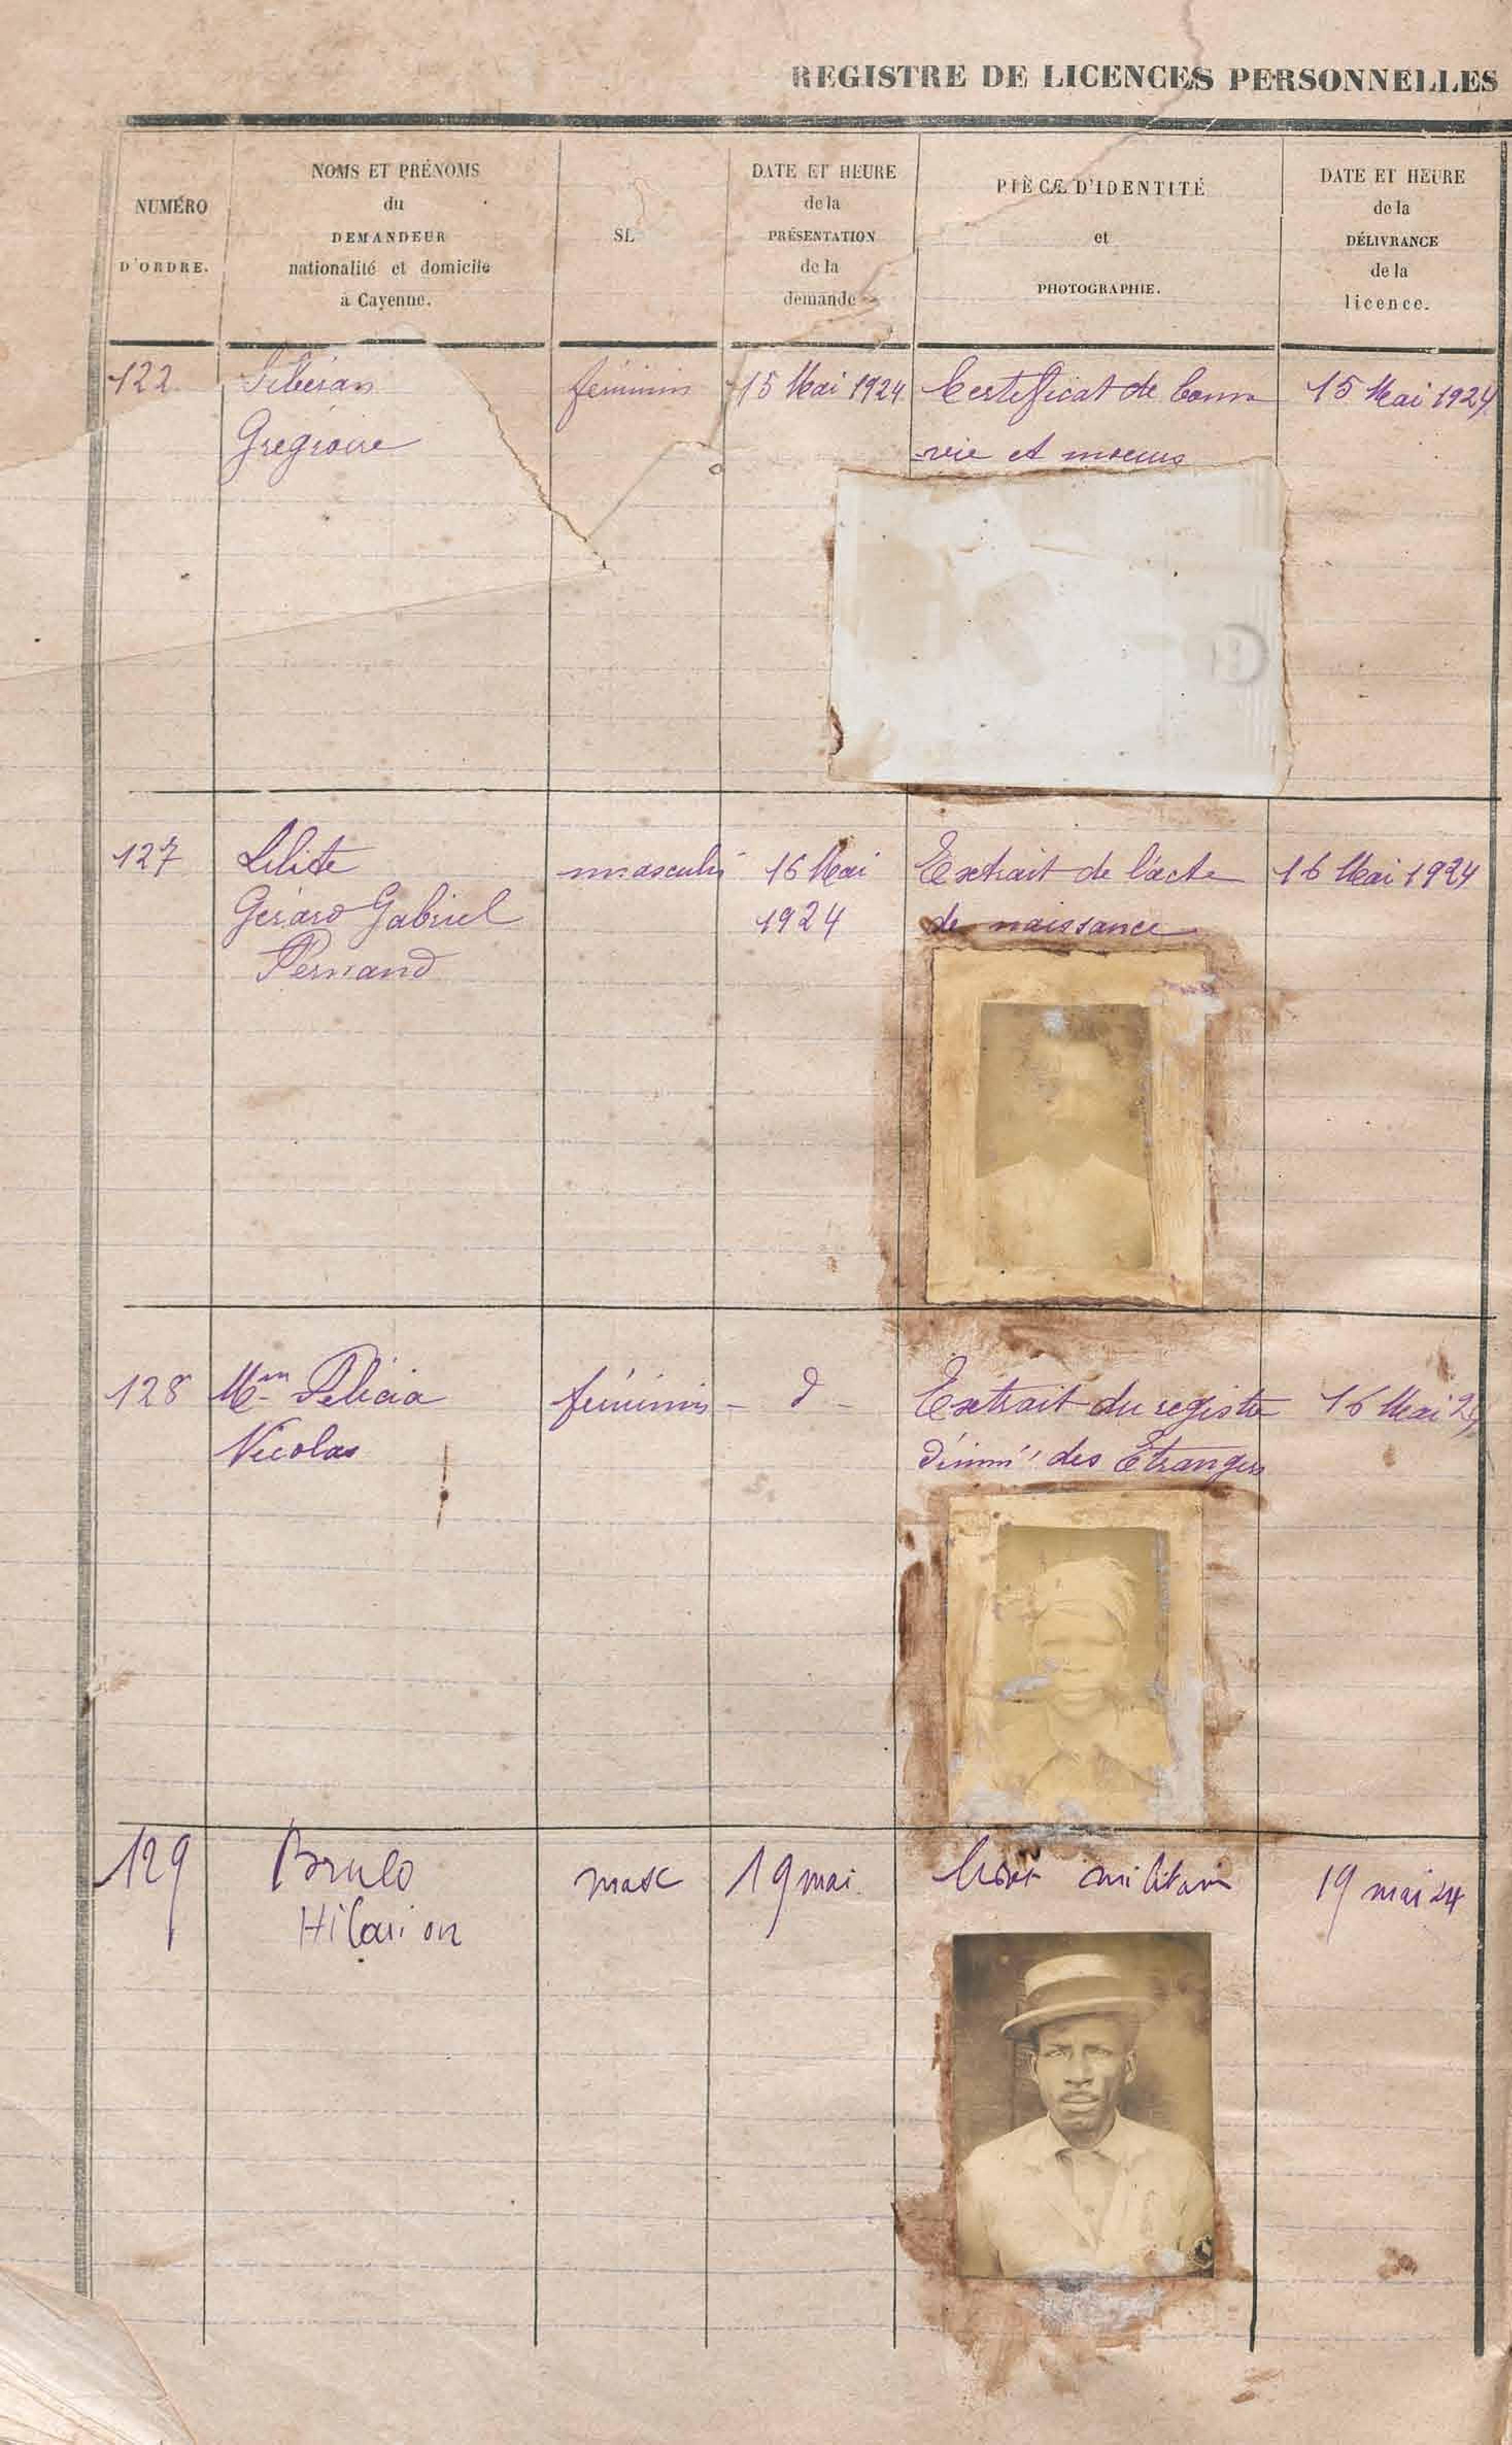 REGISTRE DE LICENCES PERSONNELLES
NUMÉRO
D'ORDRE.
NOMS ET PRÉNOMS
du
DEMANDEUR
nationalité et domicile
à Cayenne.
DATE ET HEURE
de la
PRÉSENTATION
de la
demande
PIÈCE D'IDENTITÉ
et
PHOTOGRAPHIE.
DATE ET HEURE
de la
DÉLIVRANCE
de la
licence.
122
Grégroire
féminin
15 Mai 1924
Certificat de bonn
vie et moeurs
15 Mai 1924
127
Gérard Gabriel
Fernand
masculin
16 Mai
1924
Extrait de l'acte
de naissance
16 Mai 1924
128
Mm Félicia
Nicolas
féminin
- d -
Extrait du registre
d'imm des Etrangers
16 Mai 24
129
Brulo
Hilarion
masc
19 mai
livret militaire
19 mai 24